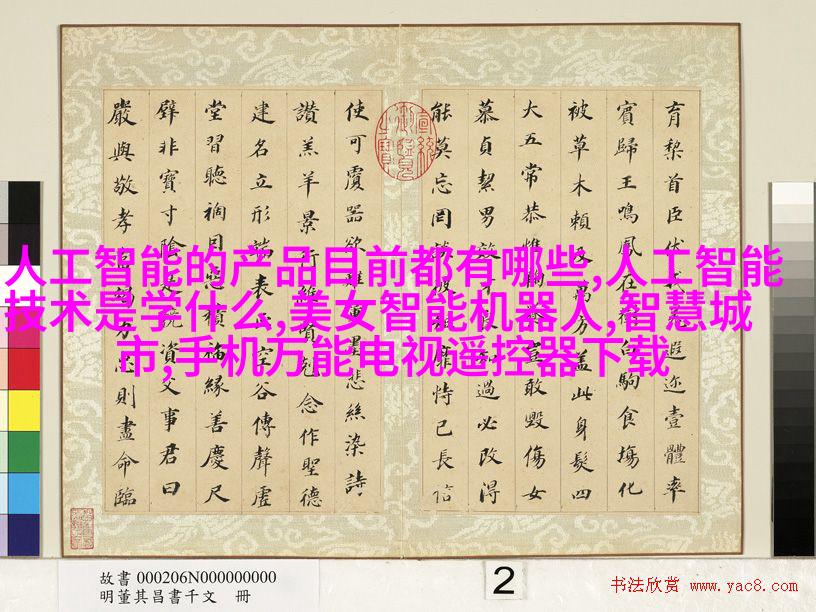 人工智能的产品目前都有哪些,人工智能
技术是学什么,美女智能机器人,智慧城
市,手机万能电视遥控器下载
育黎首臣伏戎羌遐迩壹體率
賓歸王鳴鳳在樹白駒食場化
被草木賴及萬方蓋此身髮四
大五常恭惟鞠養豈敢毀傷女
慕貞絜男效才良知過必改得
能莫忘罔談彼短靡恃己長信
使可覆器欲難量墨悲絲染詩
讚羔羊景行維賢剋念作聖德
建名立形端表正空谷傳聲虛
堂習聽禍因惡積福緣善慶尺
璧非寶寸陰是競資父事君曰
嚴與敬孝當竭力忠則盡命臨
故書 000206N000000000
明董其昌書千文 冊
2
书法欣赏 www.yac8.com